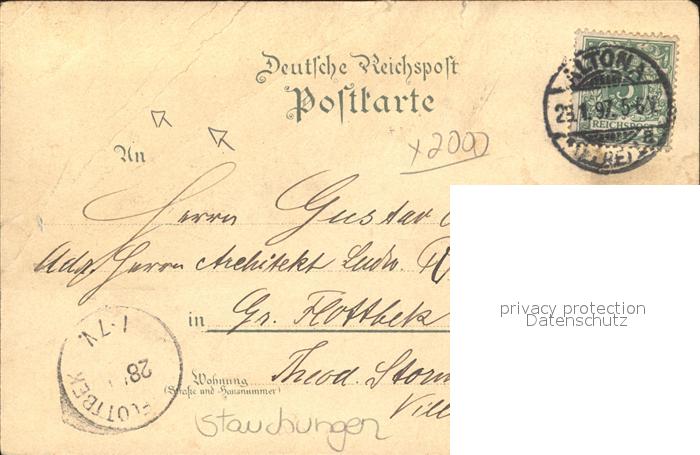 Deutsche Reichspost
Postkarte
ALTONA
5
REICHSPOST
(ELBE)
x2000
An
Herrn Gustav
Adr. Herrn Architekt Ludw.
in Gr. Flottbek
FLOTTBEK
28
7-7V.
Wohnung
(Straße und Hausnummer)
Theod. Storm
Vill
Stauchungen
privacy protection
Datenschutz